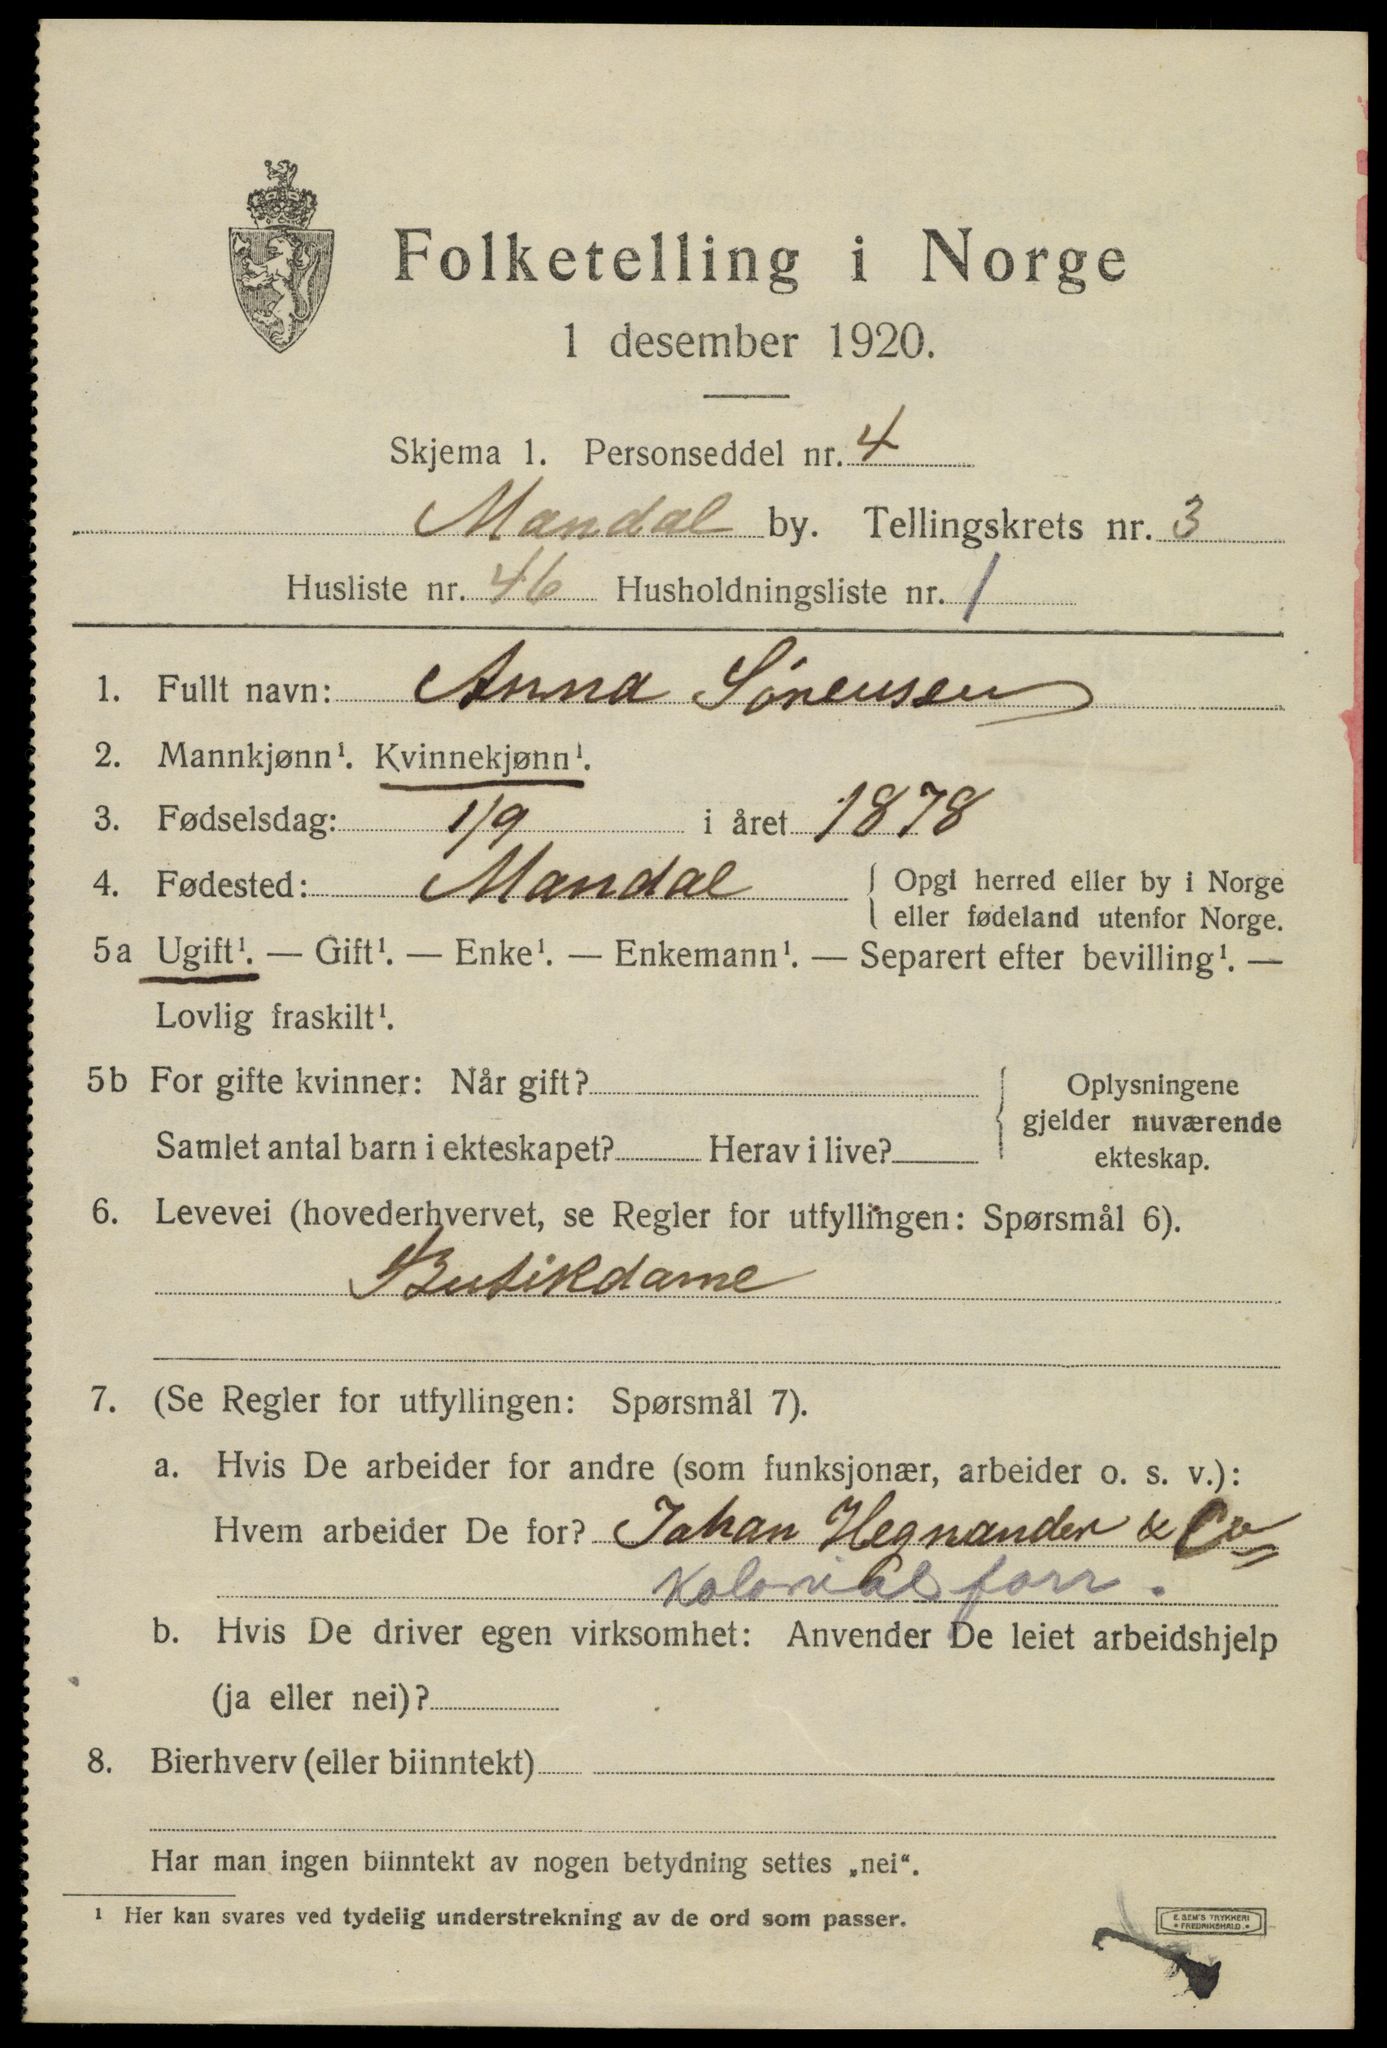 Folketelling i Norge
1 desember 1920.
Skjema 1. Personseddel nr. 4
Mandal by. Tellingskrets nr. 3
Husliste nr. 46 Husholdningsliste nr. 1
1. Fullt navn: Anna Sörensen
2. Mannkjønn¹. Kvinnekjønn¹.
3. Fødselsdag: 1/9 i året 1878
4. Fødested: Mandal { Opgi herred eller by i Norge
eller fødeland utenfor Norge.
5a Ugift¹. — Gift¹. — Enke¹. — Enkemann¹. — Separert efter bevilling¹. —
Lovlig fraskilt¹.
5b For gifte kvinner: Når gift?
Samlet antal barn i ekteskapet? Herav i live?
Oplysningene
gjelder nuværende
ekteskap.
6. Levevei (hovederhvervet, se Regler for utfyllingen: Spørsmål 6).
Butikdame
7. (Se Regler for utfyllingen: Spørsmål 7).
a. Hvis De arbeider for andre (som funksjonær, arbeider o. s. v.):
Hvem arbeider De for? Johan Hegnander & Co
Kolonialforr.
b. Hvis De driver egen virksomhet: Anvender De leiet arbeidshjelp
(ja eller nei)?
8. Bierhverv (eller biinntekt)
Har man ingen biinntekt av nogen betydning settes „nei“.
¹ Her kan svares ved tydelig understrekning av de ord som passer.
E. SEM'S TRYKKERI
* FREDRIKSHALD. *